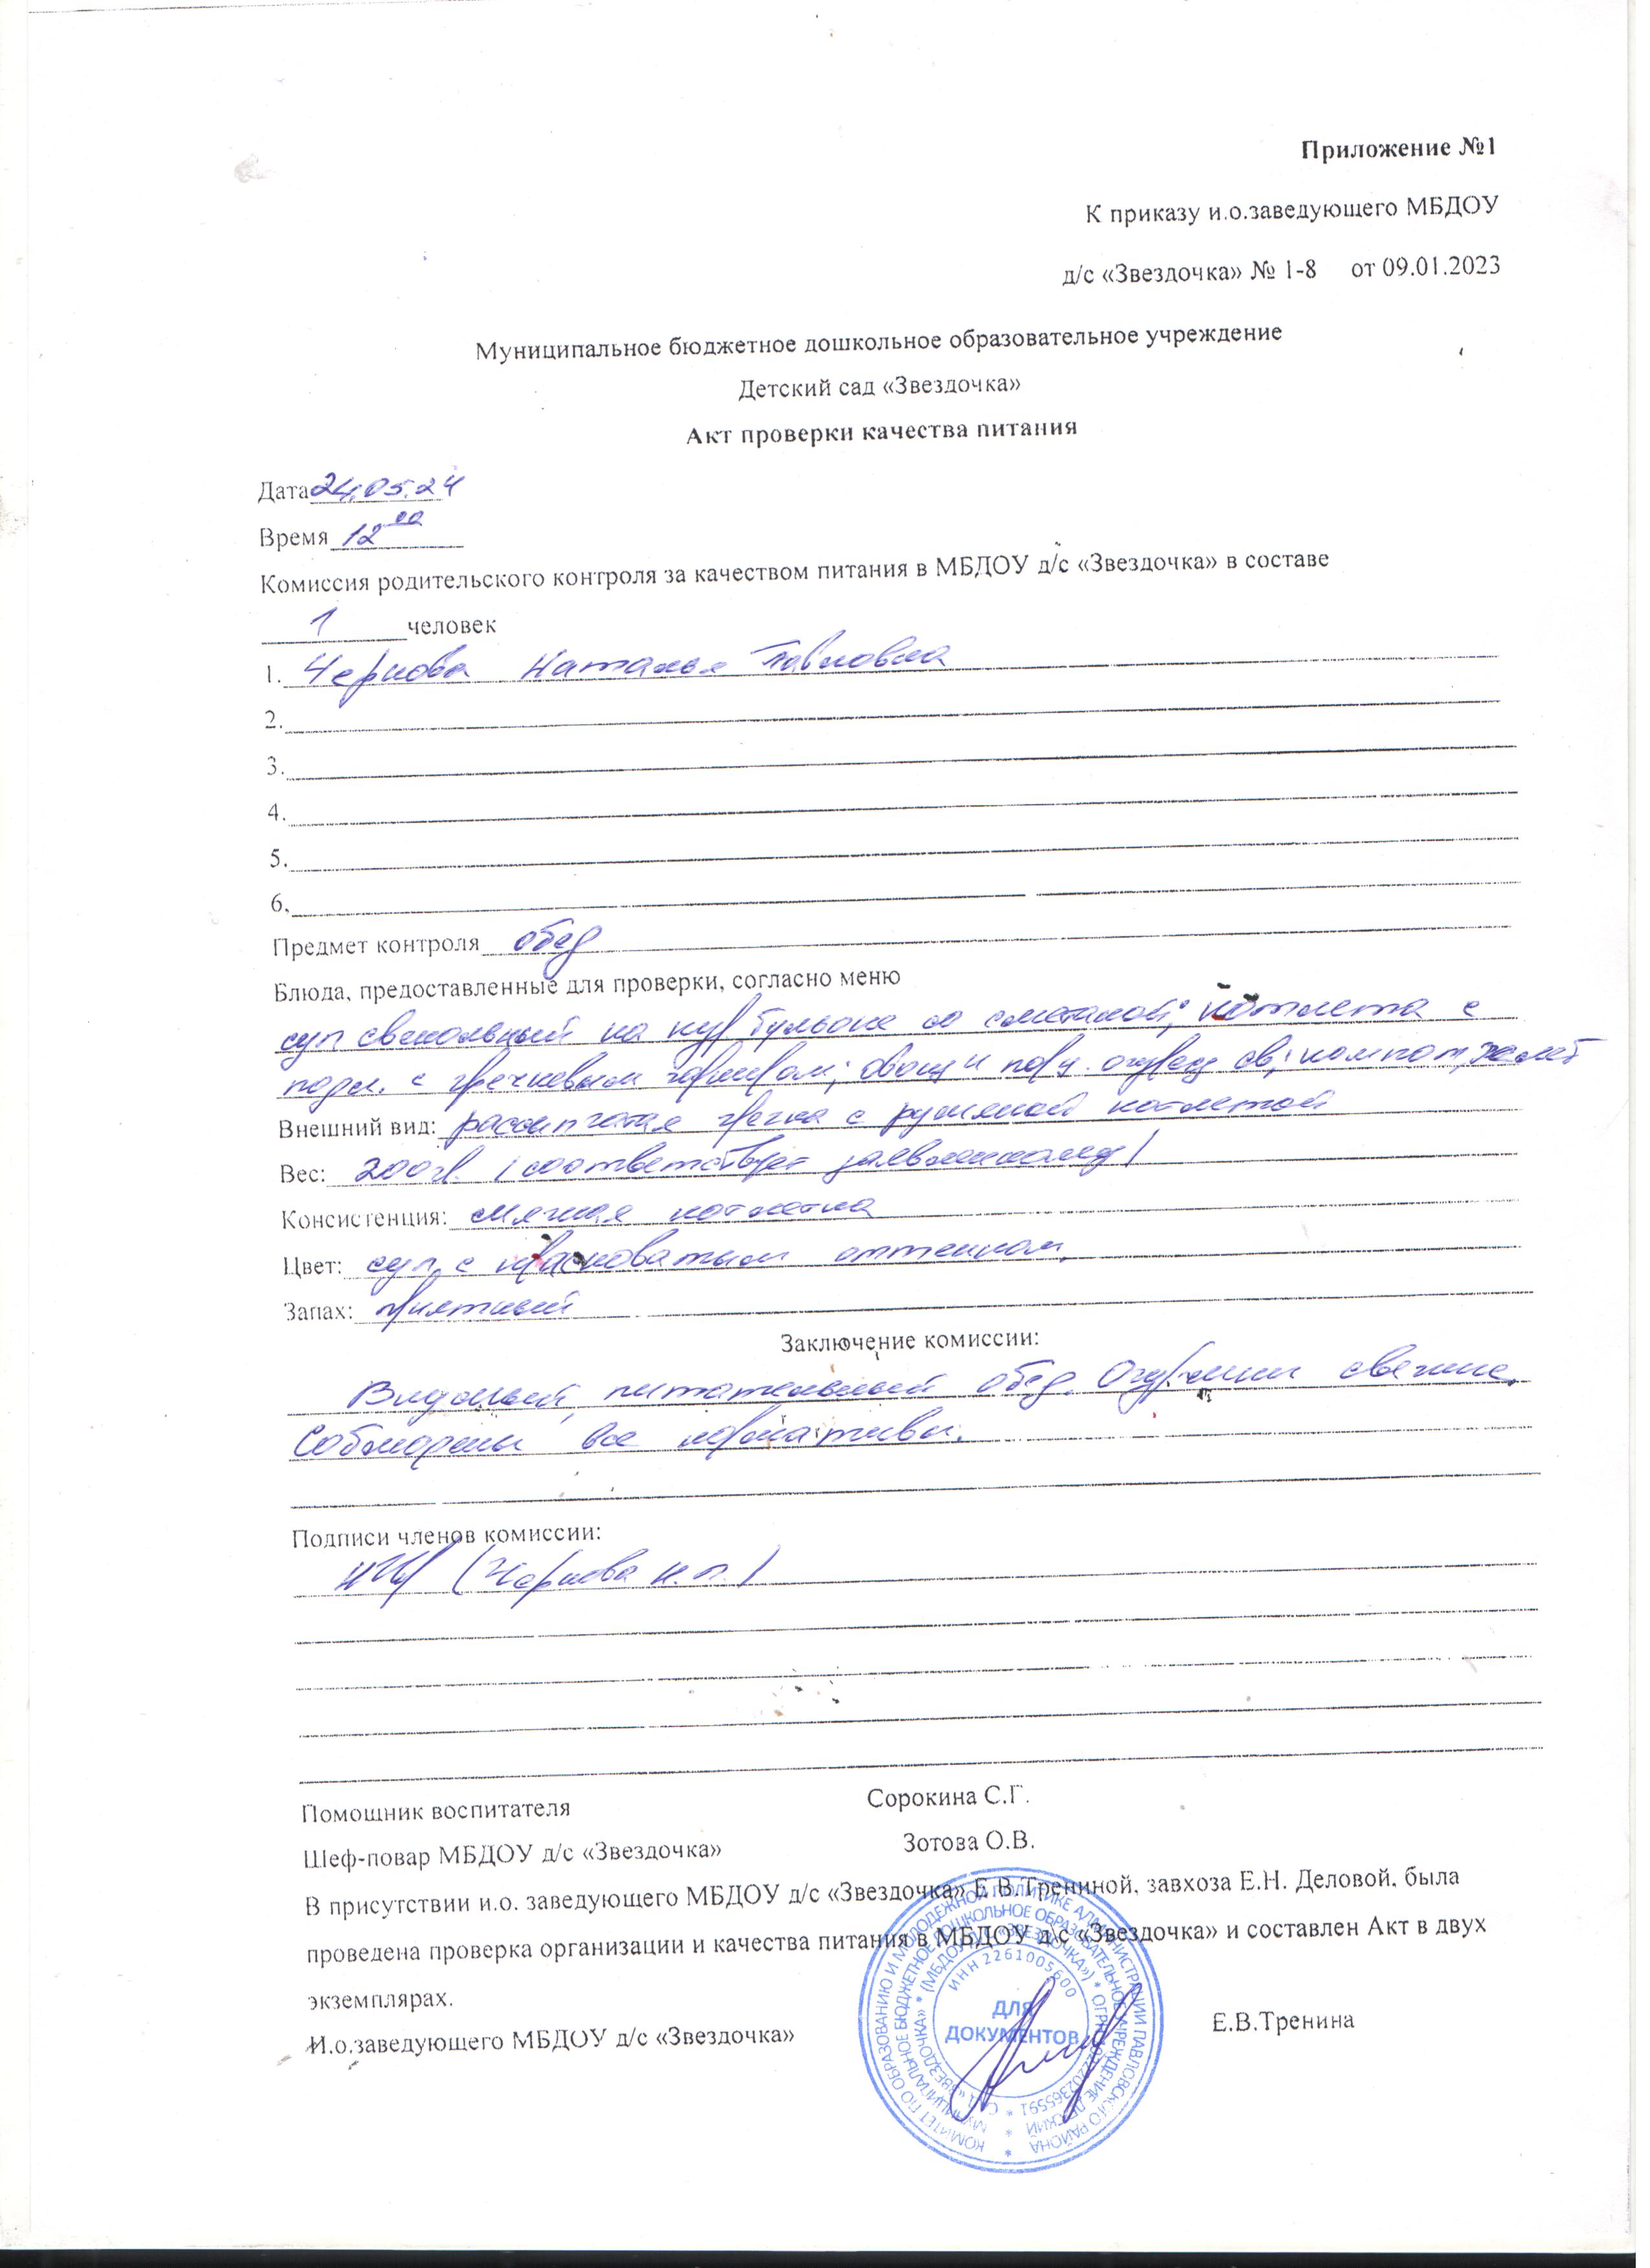 Приложение №1
К приказу и.о.заведующего МБДОУ
д/с «Звездочка» № 1-8 от 09.01.2023
Муниципальное бюджетное дошкольное образовательное учреждение
Детский сад «Звездочка»
Акт проверки качества питания
Дата 24.05.24
Время 12 00
Комиссия родительского контроля за качеством питания в МБДОУ д/с «Звездочка» в составе
1 человек
1. Чернова Наталья Павловна
2.
3.
4.
5.
6.
Предмет контроля обед
Блюда, предоставленные для проверки, согласно меню
суп свекольный на кур бульоне со сметаной; котлета с
подл. с гречневым гарниром; овощи порц. огурец св; компот, хлеб
Внешний вид: рассыпчатая гречка с румяной котлетой
Вес: 200гр. (соответствует заявленному)
Консистенция: мягкая котлетка
Цвет: суп с красноватым оттенком,
Запах: приятный
Заключение комиссии:
Вкусный, питательный обед. Огурчики свежие.
Соблюдены все нормативы.
Подписи членов комиссии:
(Чернова Н.П.)
Помощник воспитателя Сорокина С.Г.
Шеф-повар МБДОУ д/с «Звездочка» Зотова О.В.
В присутствии и.о. заведующего МБДОУ д/с «Звездочка» Е.В.Трениной, завхоза Е.Н. Деловой, была
проведена проверка организации и качества питания в МБДОУ д/с «Звездочка» и составлен Акт в двух
экземплярах.
И.о.заведующего МБДОУ д/с «Звездочка» Е.В.Тренина
КОМИТЕТ ПО ОБРАЗОВАНИЮ И МОЛОДЕЖНОЙ ПОЛИТИКЕ АДМИНИСТРАЦИИ ПАВЛОВСКОГО РАЙОНА
МУНИЦИПАЛЬНОЕ БЮДЖЕТНОЕ ДОШКОЛЬНОЕ ОБРАЗОВАТЕЛЬНОЕ УЧРЕЖДЕНИЕ ДЕТСКИЙ
ИНН 2261005600
ДЛЯ
ДОКУМЕНТОВ